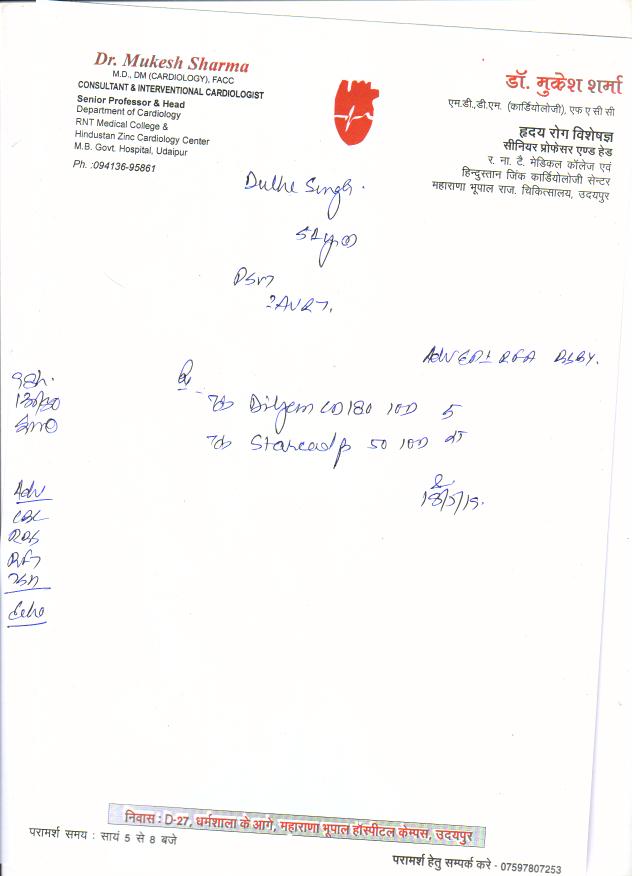 Dr. Mukesh Sharma
M.D., DM (CARDIOLOGY), FACC
CONSULTANT & INTERVENTIONAL CARDIOLOGIST
Senior Professor & Head
Department of Cardiology
RNT Medical College &
Hindustan Zinc Cardiology Center
M.B. Govt. Hospital, Udaipur
Ph. :094136-95861
डॉ. मुकेश शर्मा
एम.डी.,डी.एम. (कार्डियोलोजी), एफ ए सी सी
हृदय रोग विशेषज्ञ
सीनियर प्रोफेसर एण्ड हेड
र. ना. टै. मेडिकल कॉलेज एवं
हिन्दुस्तान जिंक कार्डियोलोजी सेन्टर
महाराणा भूपाल राज. चिकित्सालय, उदयपुर
Dulhe Singh
PSVT
?AVRT.
Adv EPS RFA
Rx
Dilzem CD 180 1OD
Starcad 50 1OD
18/5/19.
98/.
130/80
Adv
CBC
RBS
RFT
Echo
निवास : D-27, धर्मशाला के आगे, महाराणा भूपाल हॉस्पीटल केम्पस, उदयपुर
परामर्श समय : सायं 5 से 8 बजे
परामर्श हेतु सम्पर्क करे - 07597807253